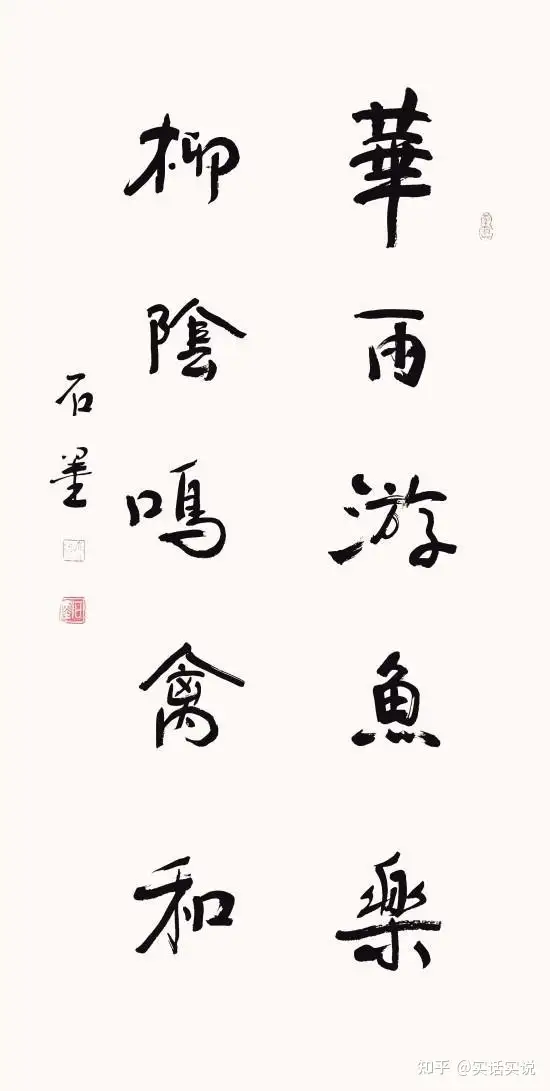 華雨游魚樂
柳陰鳴禽和
石墨
知乎 @实话实说